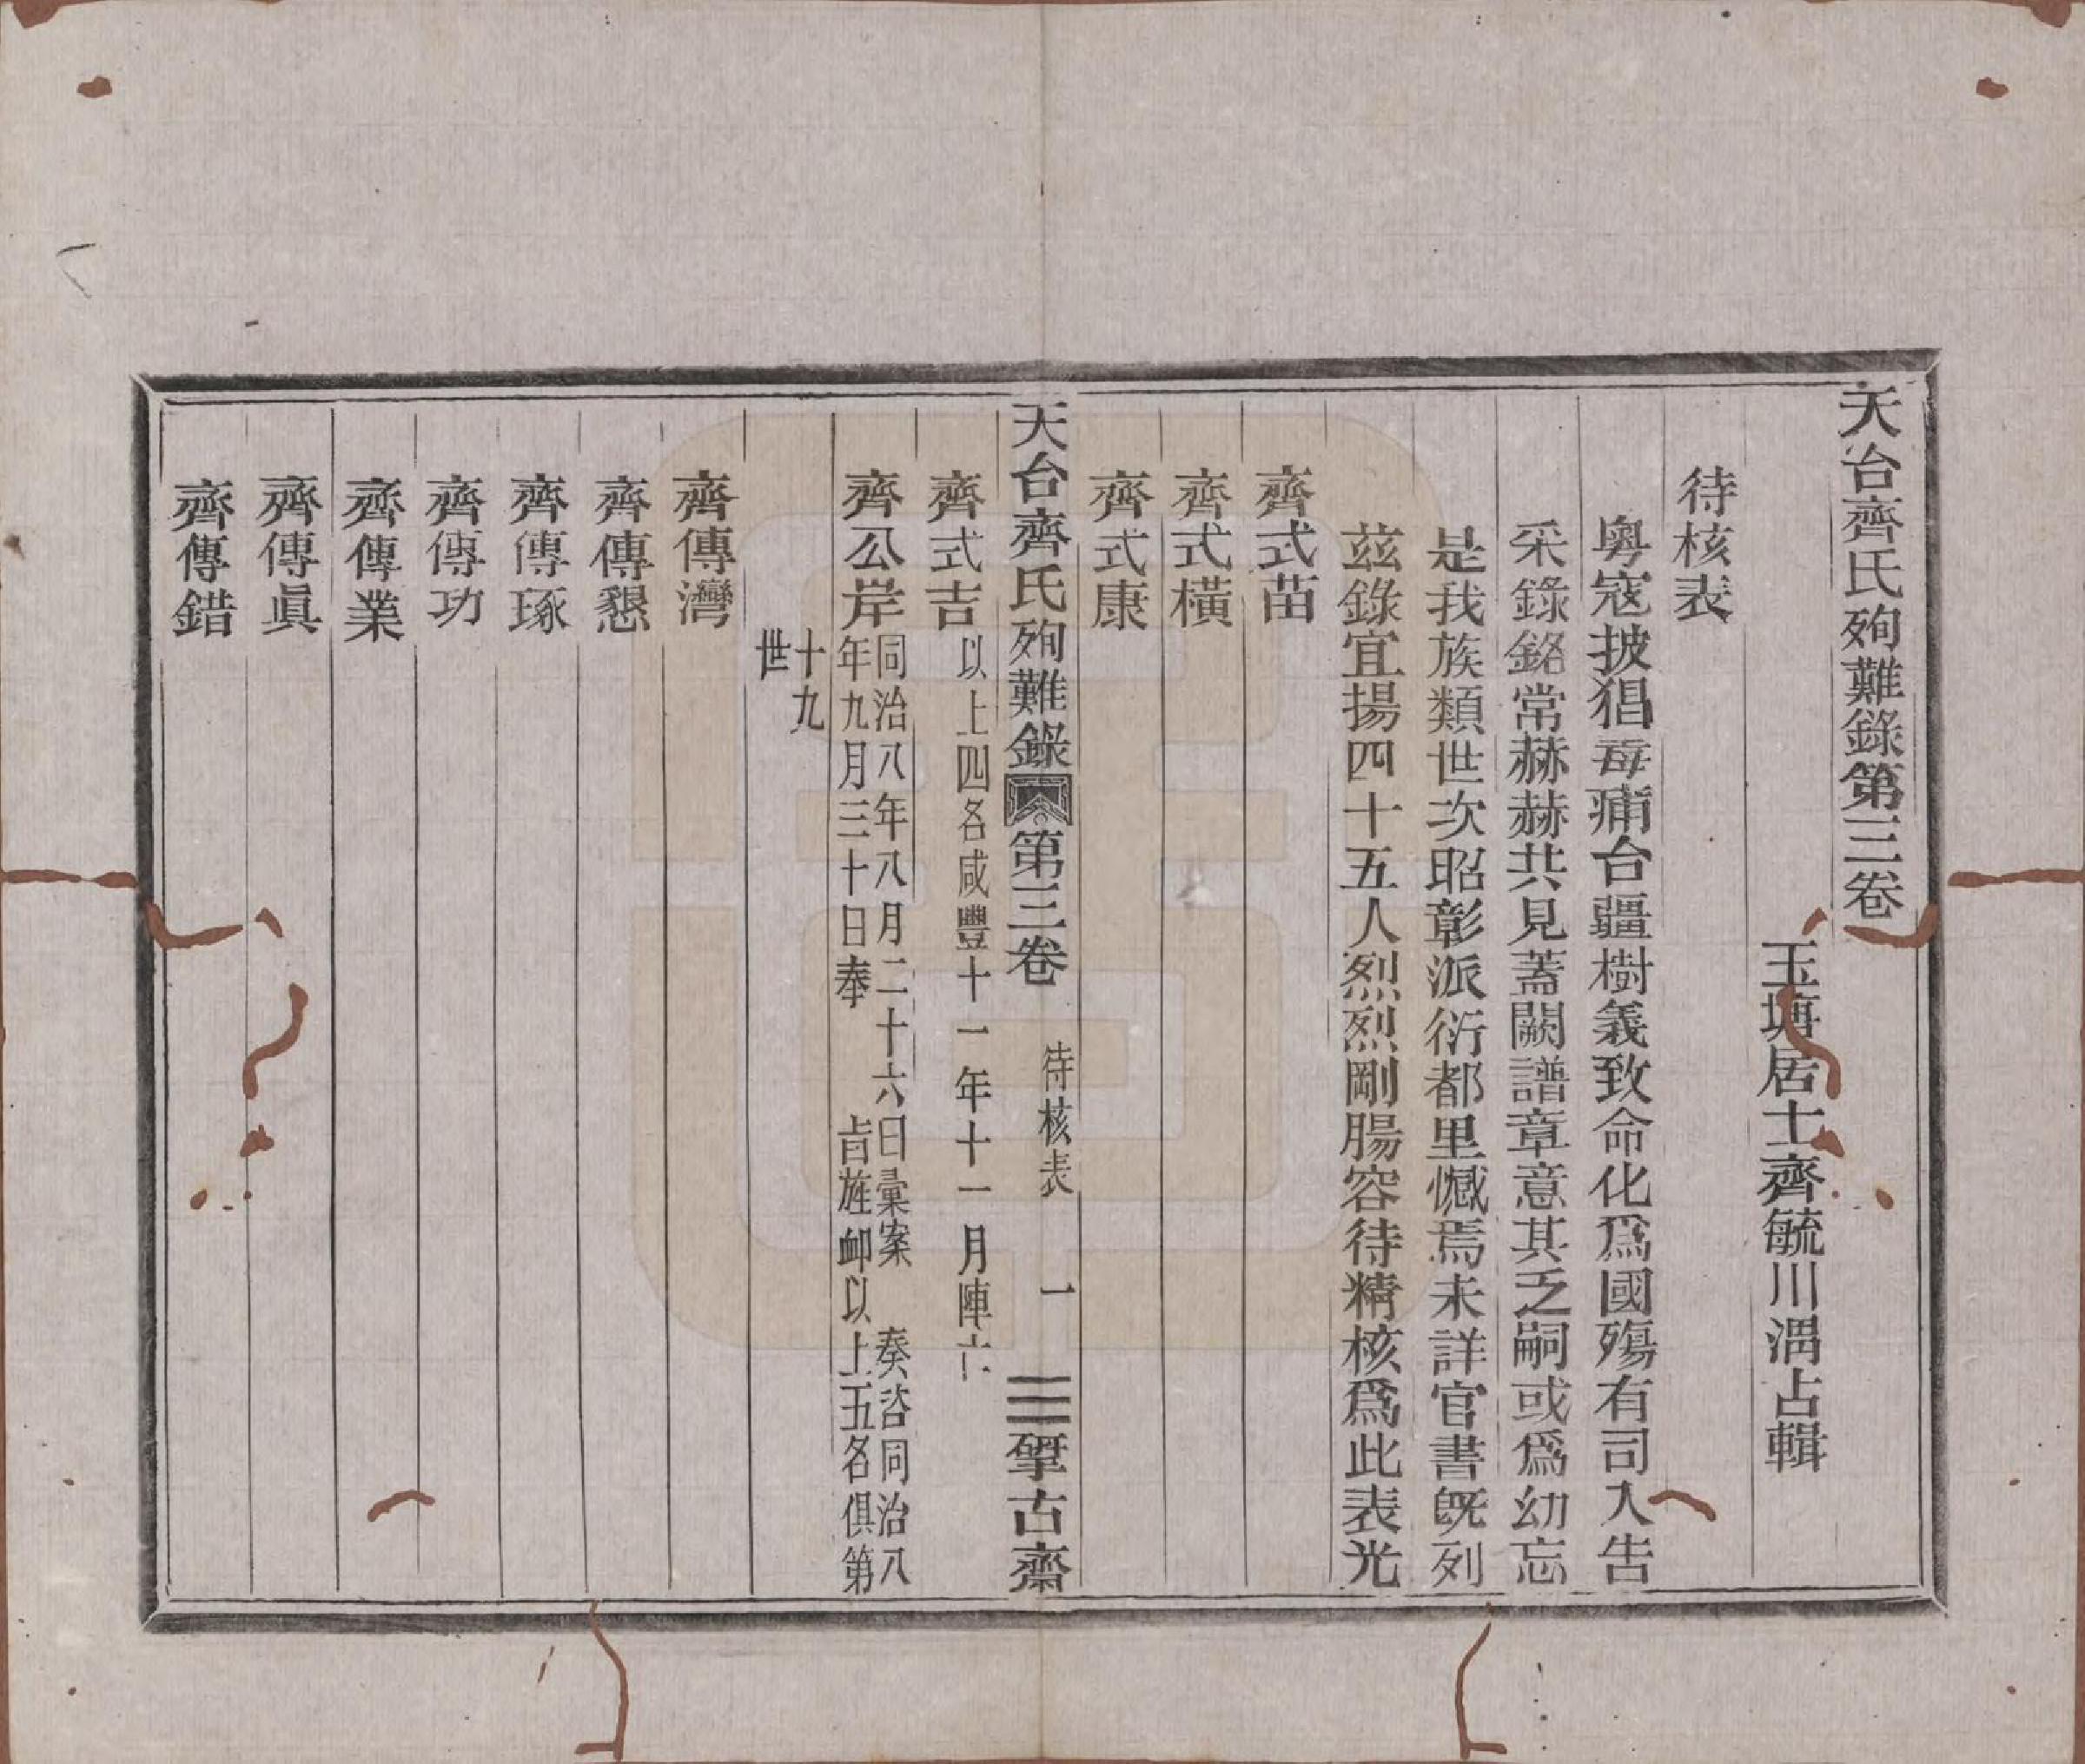 天台齊氏殉難錄第三卷
玉塘居士齊毓川渭占輯
待核表
粵寇披猖毒痡台疆樹義致命化爲國殤有司入告
采錄銘常赫赫共見蓋闕譜章意其乏嗣或爲幼忘
是我族類世次昭彰派衍都里憾焉未詳官書旣列
茲錄宜揚四十五人烈烈剛腸容待精核爲此表光
齊式苗
齊式橫
齊式康
天台齊氏殉難錄 第三卷 待核表 一 揅古齋
齊式吉 以上四名咸豐十一年十一月陣亡
齊公岸 同治八年八月二十六日彙案 奏咨同治八
年九月三十日奉 旨旌卹以上五名俱第
十九
世
齊傳灣
齊傳懇
齊傳琢
齊傳功
齊傳業
齊傳眞
齊傳錯